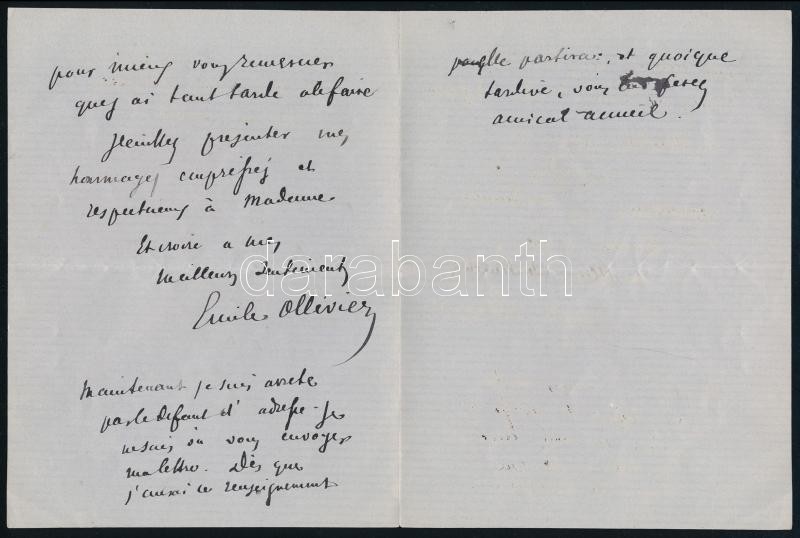 pour mieux vous remercier
que j'ai tant tardé de faire
Veuillez presenter mes
hommages empressés et
respectueux à Madame
Et croire a mes
meilleurs sentiments
Emile Ollivier
Maintenant je suis arreté
par le defaut d'adresse. Je
ne sais où vous envoyer
ma lettre. Dès que
j'aurai ce renseignement
elle partira, et quoique
tardive, vous ferez
amical accueil.
darabanth
.com